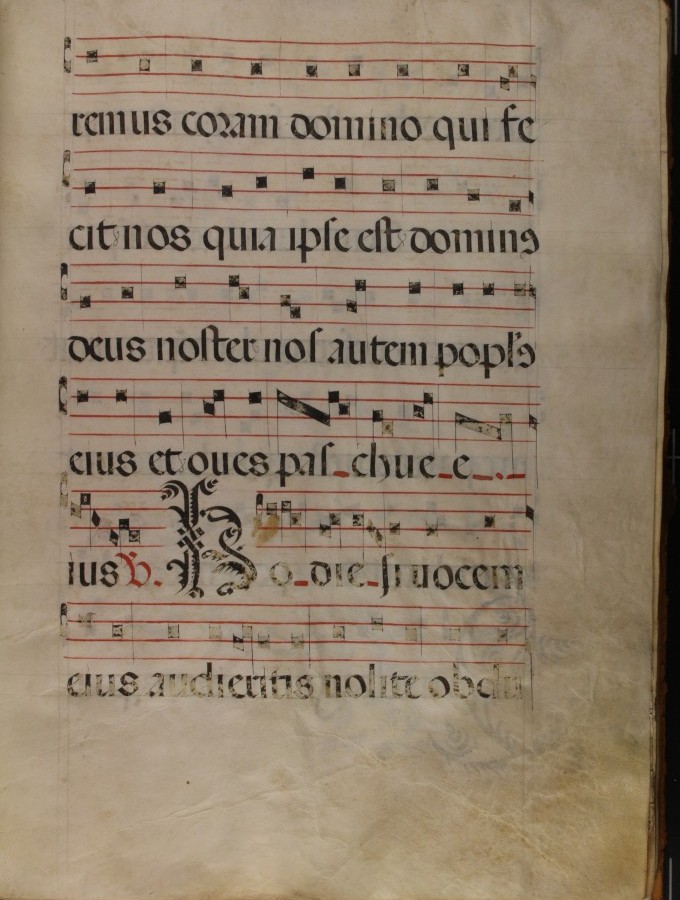 remus coram domino qui fe
cit nos quia ipse est dominꝰ
deus noster nos autem popl'ꝰ
eius et oues pas_chue_e_._
ius V. Ho_die_si uocem
eius audieritis nolite obdu